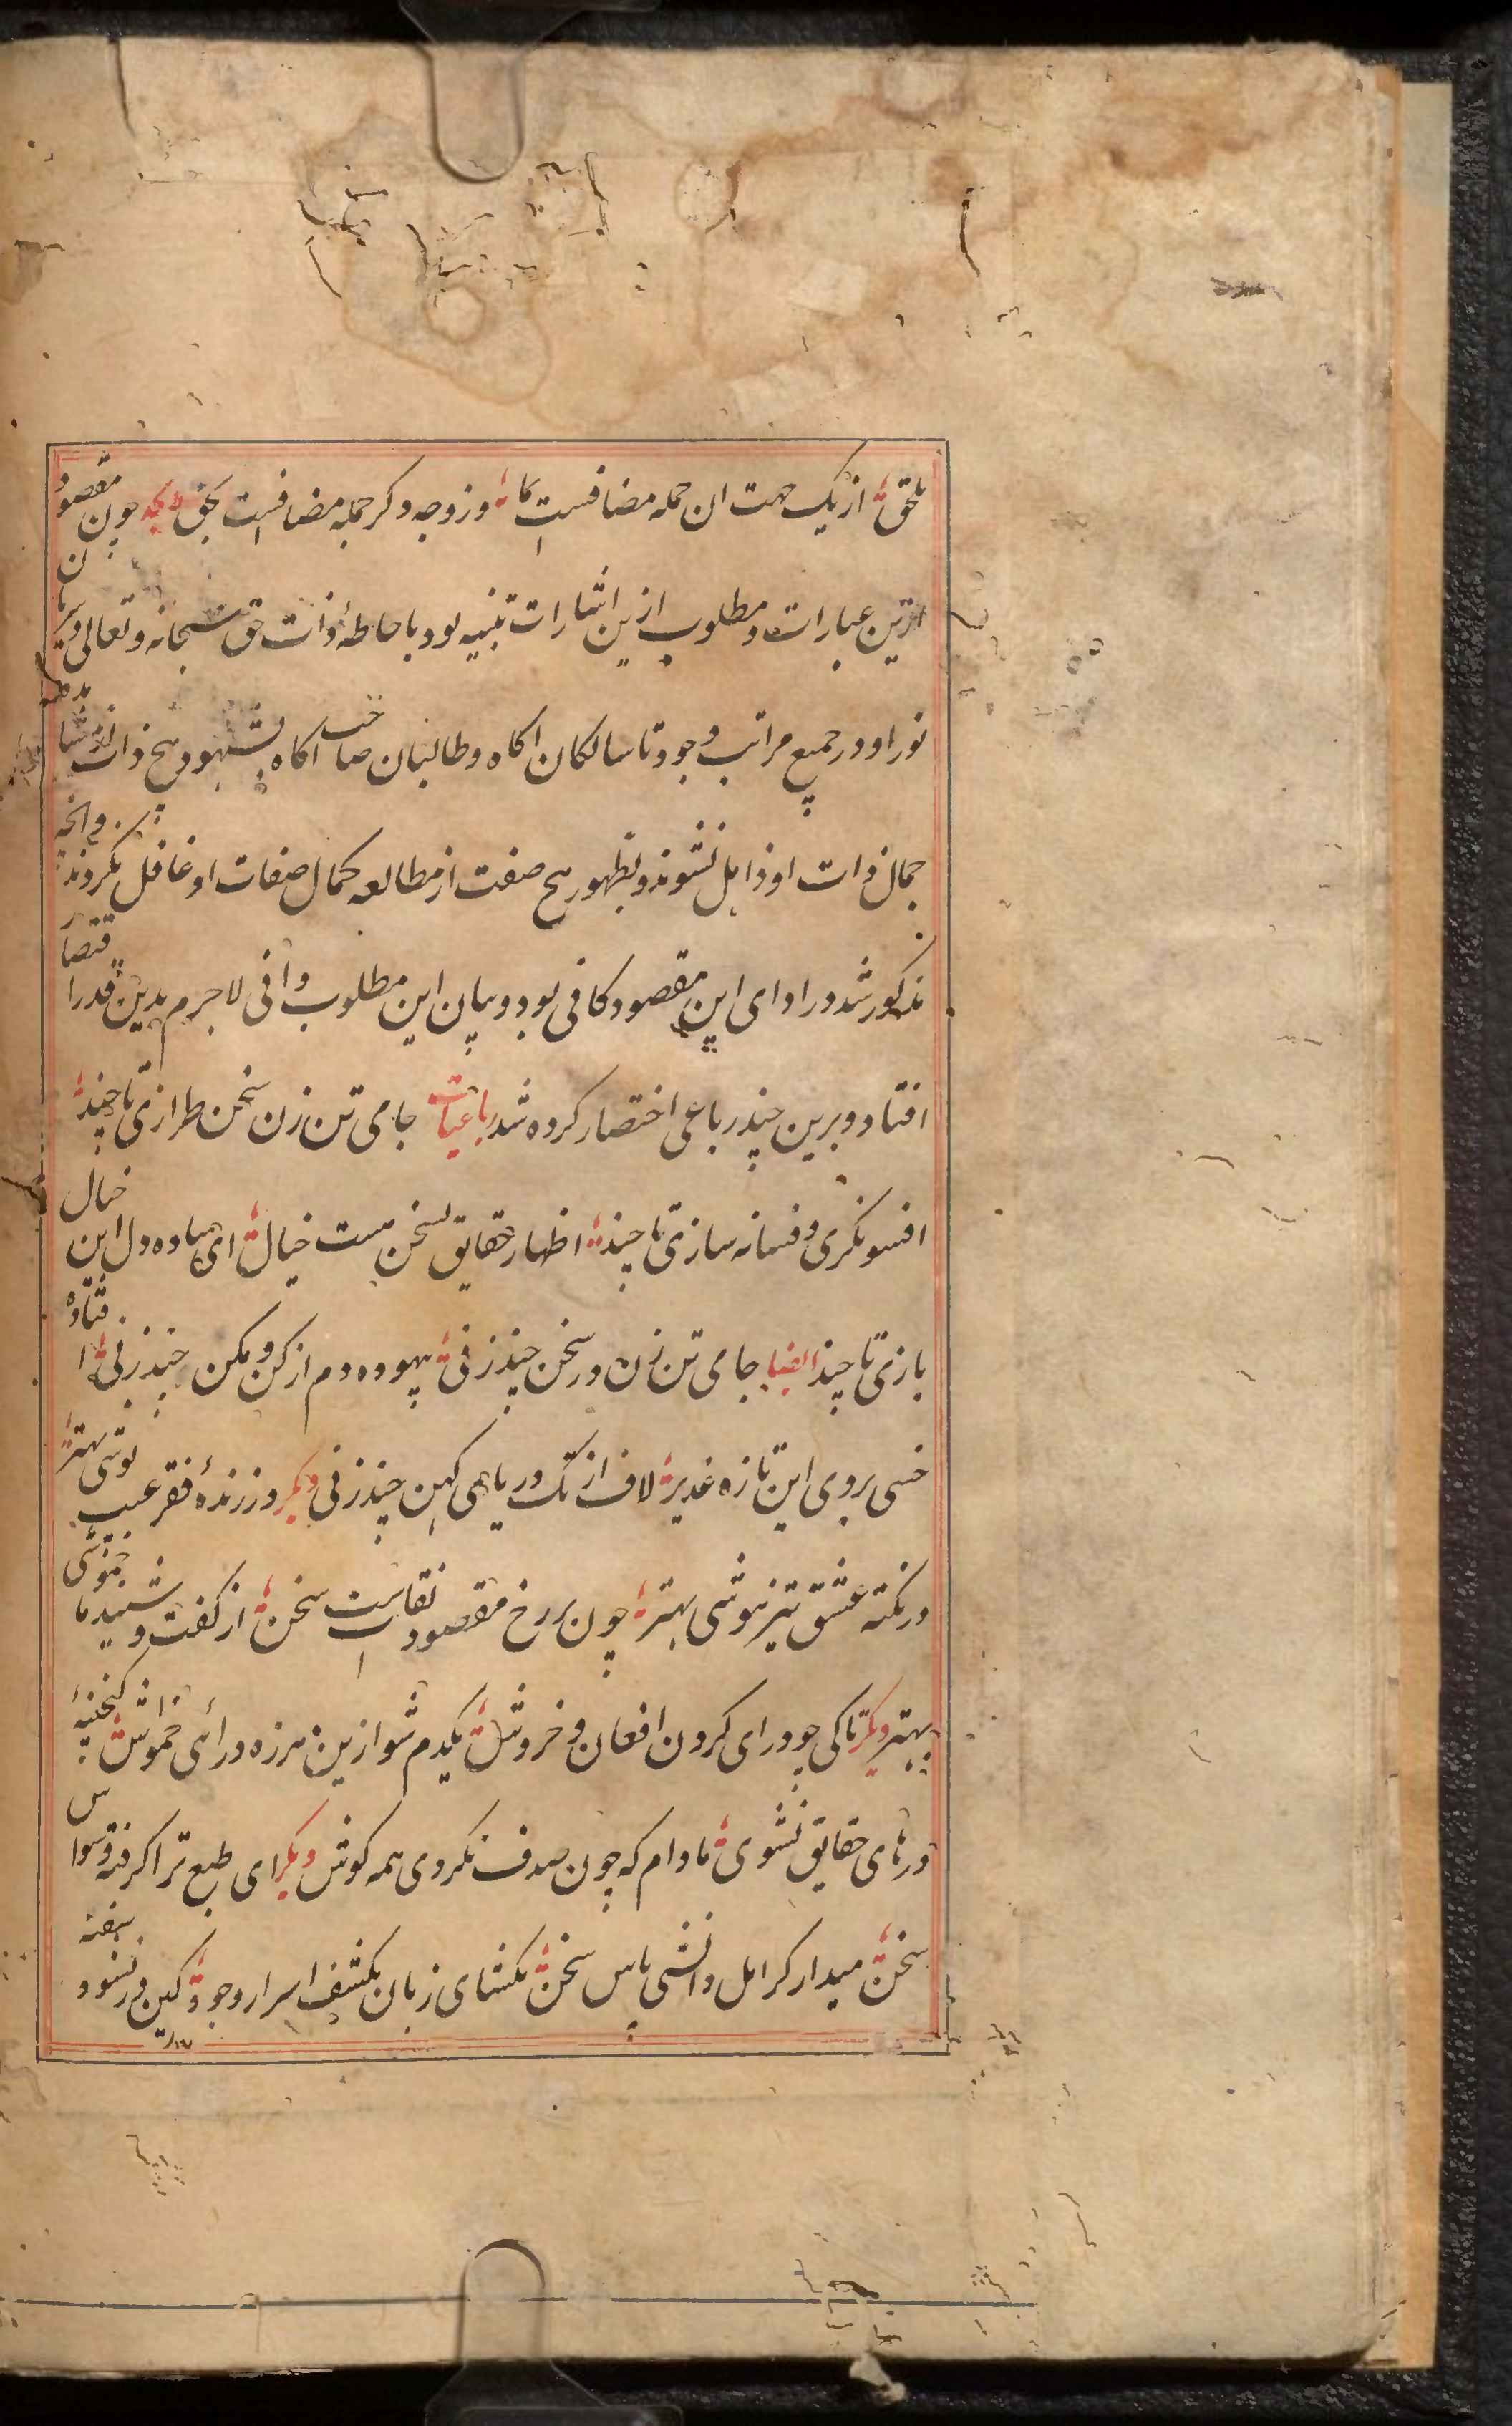 ملحق از یک جهت ان جمله مضافست بما وز وجه دکر جمله مضافست بحق لایحه چون مقصود
ازین عبارات و مطلوب ازین اشارات تنبیه بود باحاطهٔ ذات حق سبحانه و تعالی و سریان
نور او در جمیع مراتب وجود تا سالکان اکاه و طالبان صاحب اکاه بشهود هیچ ذات از مشاهده
جمال ذات او ذاهل نشوند و بظهور هیچ صفت از مطالعه کمال صفات او غافل نکردند وانچه
مذکور شد در ادای این مقصود کافی بود و ببیان این مطلوب وافی لاجرم بدین قدر اقتصار
افتاد و برین چند رباعی اختصار کرده شد رباعیات جامی تن زن سخن طرازی تا چند
افسونکری و فسانه سازی تا چند اظهار حقایق بسخن هست خیال ای ساده دل این خیال
بازی تا چند ایضا جامی تن زن در سخن چند زنی بیهوده دم از کن و مکن چند زنی افتاده
خسی بروی این تازه غدیر لاف از تک دریاهی کهن چند زنی دیکر در زندهٔ فقر عیب پوشی بهتر
در نکته عشق تیز هوشی بهتر چون بر رخ مقصود نقابست سخن از کفت و شنید ما خموشی
بهتر دیکر تا کی چو درای کردن افغان و خروش یکدم شو ازین هرزه درائی خاموش کنجینهٔ
درهای حقایق نشوی مادام که چون صدف نکردی همه کوش دیکر ای طبع ترا کرفته وسواس
سخن میدار کر اهل دانشی پاس سخن مکشای زبان بکشف اسرار وجود کین در نشود سفته